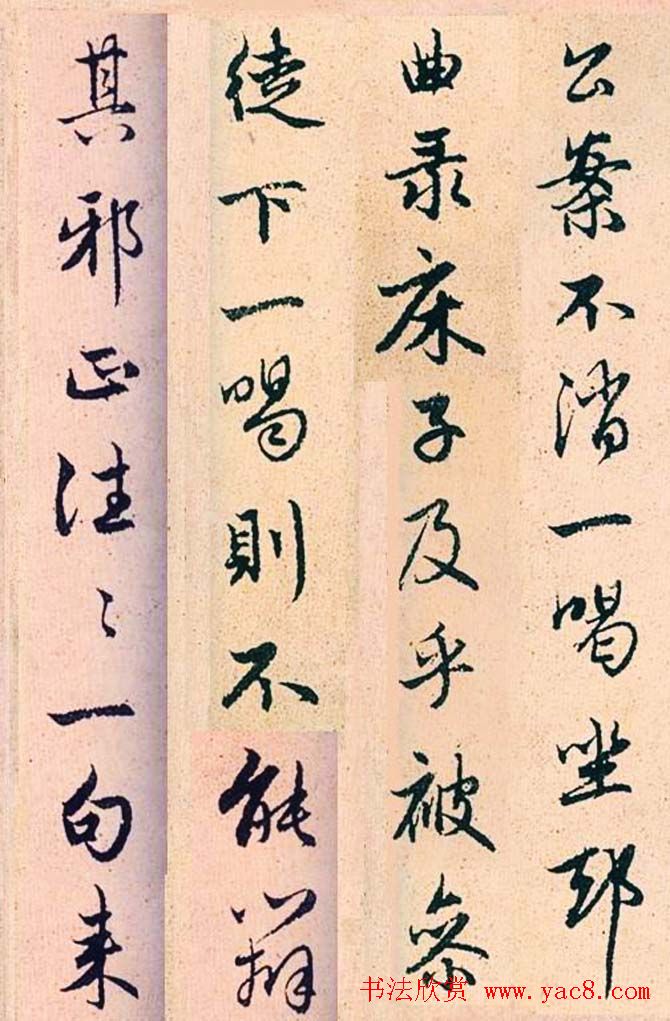 公案不消一喝坐却
曲录床子及乎被参
徒下一喝則不能辨
其邪正往〻一句来
书法欣赏 www.yac8.com